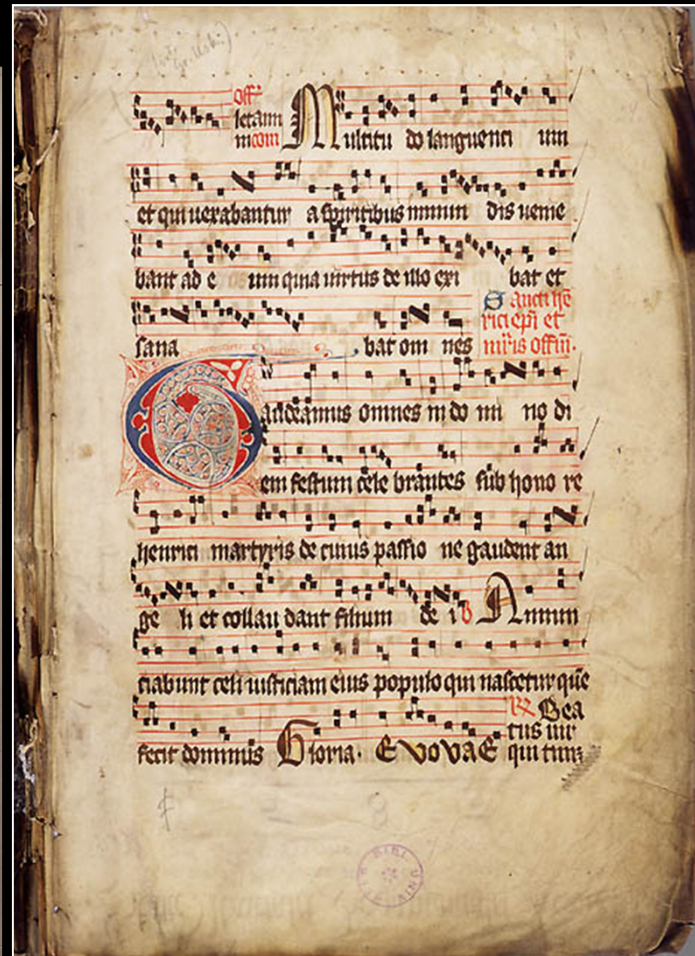 Off
letami
ni com Multitu do languenti um
et qui uexabantur a spiritibus inmun dis uenie
bant ad e um quia uirtus de illo exi bat et
sana bat om nes
Sancti he
rici epi et
mris offm.
Gaudeamus omnes in do mi no di
em festum cele brantes sub hono re
henrici martyris de cuius passio ne gaudent an
ge li et collau dant filium de i Annun
ciabunt celi iusticiam eius populo qui nascetur que
fecit dominus Gloria. EVOVAE
Bea
tus uir
qui tim